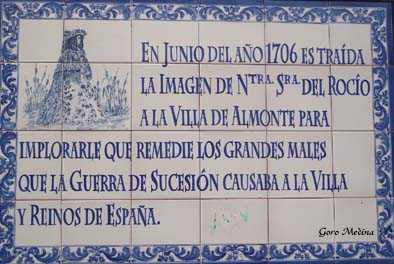 En Junio del año 1706 es traída
la Imagen de Ntra. Sra. del Rocío
a la Villa de Almonte para
implorarle que remedie los grandes males
que la Guerra de Sucesión causaba a la Villa
y Reinos de España.
Goro Medina